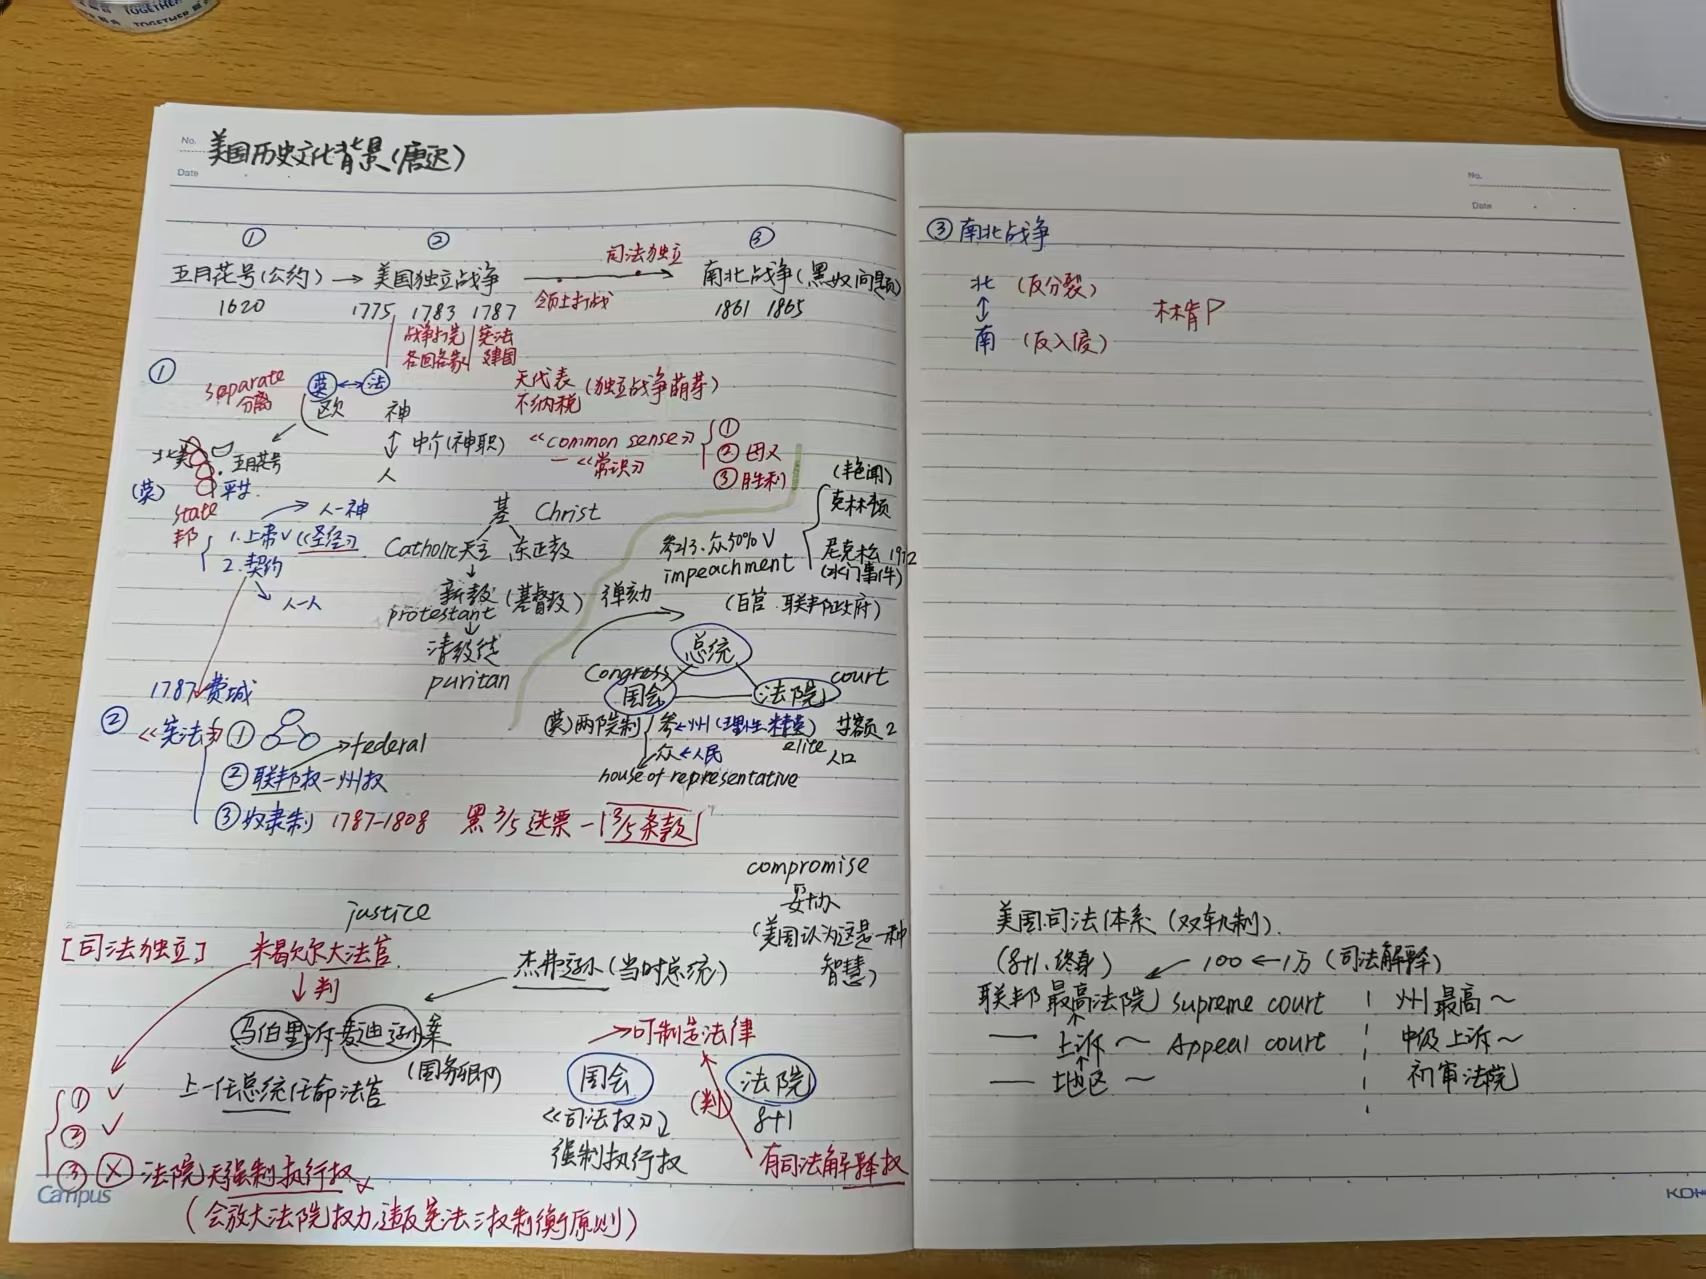 TOGETHER
No.
Date
美国历史文化背景(唐迟)
① ② ③
五月花号(公约) → 美国独立战争 司法独立 南北战争(黑奴问题)
1620 1775 1783 1787 领土扩战 1861 1865
战争打完 各回各家
宪法 建国
①
separate 分离
英 ↔ 法
欧
无代表 不纳税 (独立战争萌芽)
神
↕ 中介(神职)
人
《common sense》
《常识》
①
②
③ 胜利
北美 五月花号
(英)
state
邦
1.上帝∨《圣经》 → 人-神
2.契约
人-人
基 Christ
Catholic天主 东正教
新教 (基督教)
protestant
清教徒
puritan
克林顿
尼克松 1972
(水门事件)
参2/3、众50%∨
impeachment
弹劾
(白宫、联邦政府)
总统
Congress
国会
court
法院
(英)两院制 参←州(理性、精英) 2
elite 人口
众←人民
house of representative
1787费城
② 《宪法》 ①
→federal
②联邦权-州权
③奴隶制 1787-1808 黑3/5选票-「3/5条款」
compromise
妥协
(美国认为这是一种智慧)
justice
[司法独立] 大法官
↓判
杰弗逊(当时总统)
马伯里诉麦迪逊案
(国务卿)
上一任总统任命法官
→可制造法律
国会 法院
《司法权》 8+1
强制执行权
(判)
有司法解释权
① ✓
② ✓
③ ⓧ 法院无强制执行权
(会放大法院权力,违反宪法三权制衡原则)
Campus
No.
Date
③南北战争
北 (反分裂)
↕
南 (反入侵)
林肯P
美国司法体系(双轨制).
(8+1、终身) ← 100 ← 1万 (司法解释)
联邦最高法院 supreme court | 州最高~
— 上诉 ~ Appeal court | 中级上诉~
— 地区 ~ | 初审法院